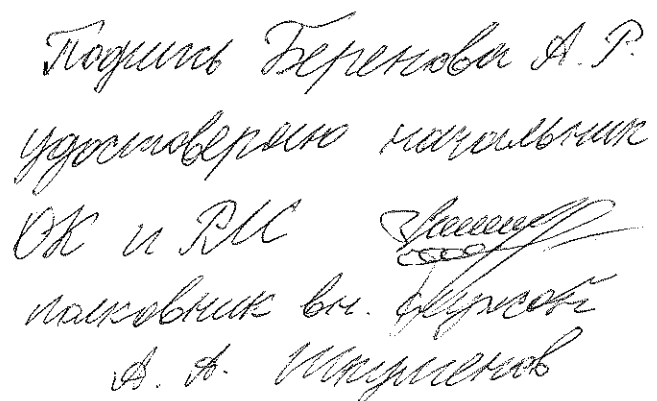 Подпись Беренова А. Р.
удостоверяю начальник
ОК и
полковник вн. службы
А. А.